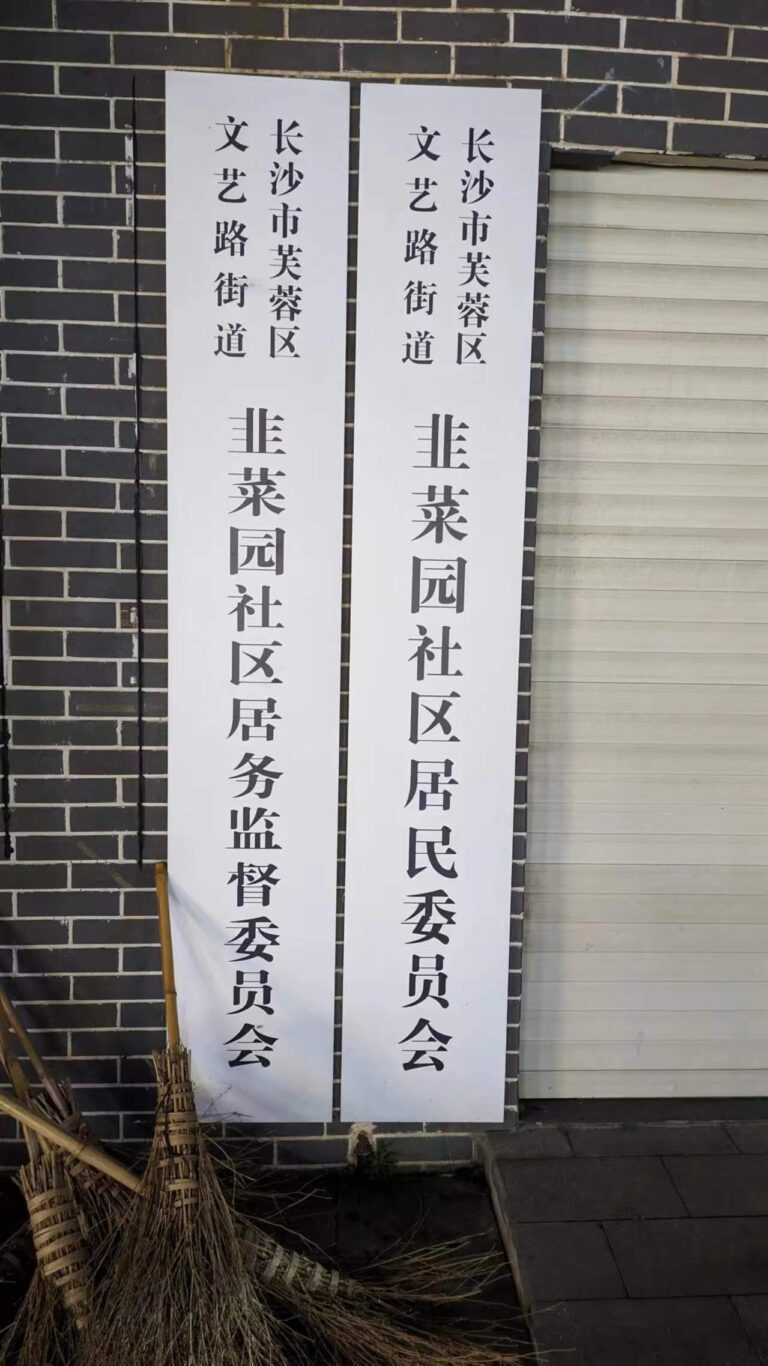 长沙市芙蓉区
文艺路街道
韭菜园社区居民委员会
长沙市芙蓉区
文艺路街道
韭菜园社区居务监督委员会